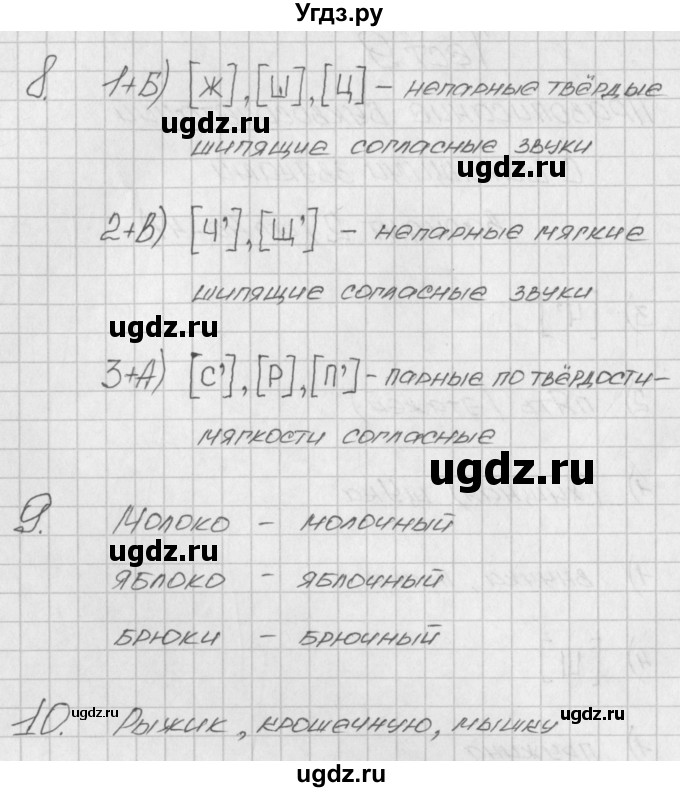 Угдз.ру
8. 1+Б) [Ж], [Ш], [Ц] – непарные твёрдые
ugdz.ru
шипящие согласные звуки
ugdz.ru
2+В) [Ч'], [Щ'] – непарные мягкие
шипящие согласные звуки
ugdz.ru
3+А) [С'], [Р], [П'] – парные по твёрдости-
мягкости согласные
ugdz.ru
9. Молоко – молочный
ugdz.ru
яблоко – яблочный
брюки – брючный
ugdz.ru
10. Рыжик, крошечную, мышку
ugdz.ru
ugdz.ru